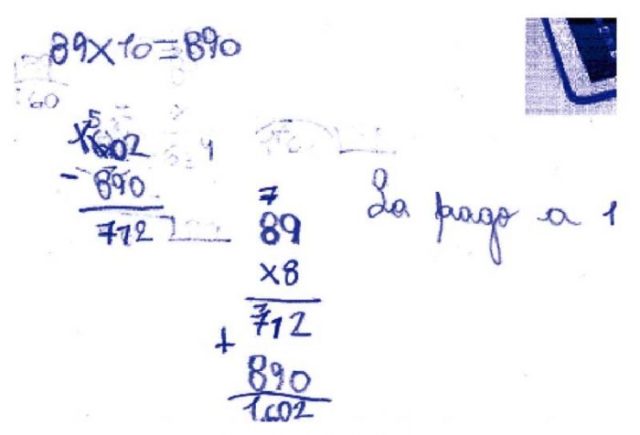 89×10=890
1602
- 890
712
7
89
×8
712
+
890
1.602
La pago a 1